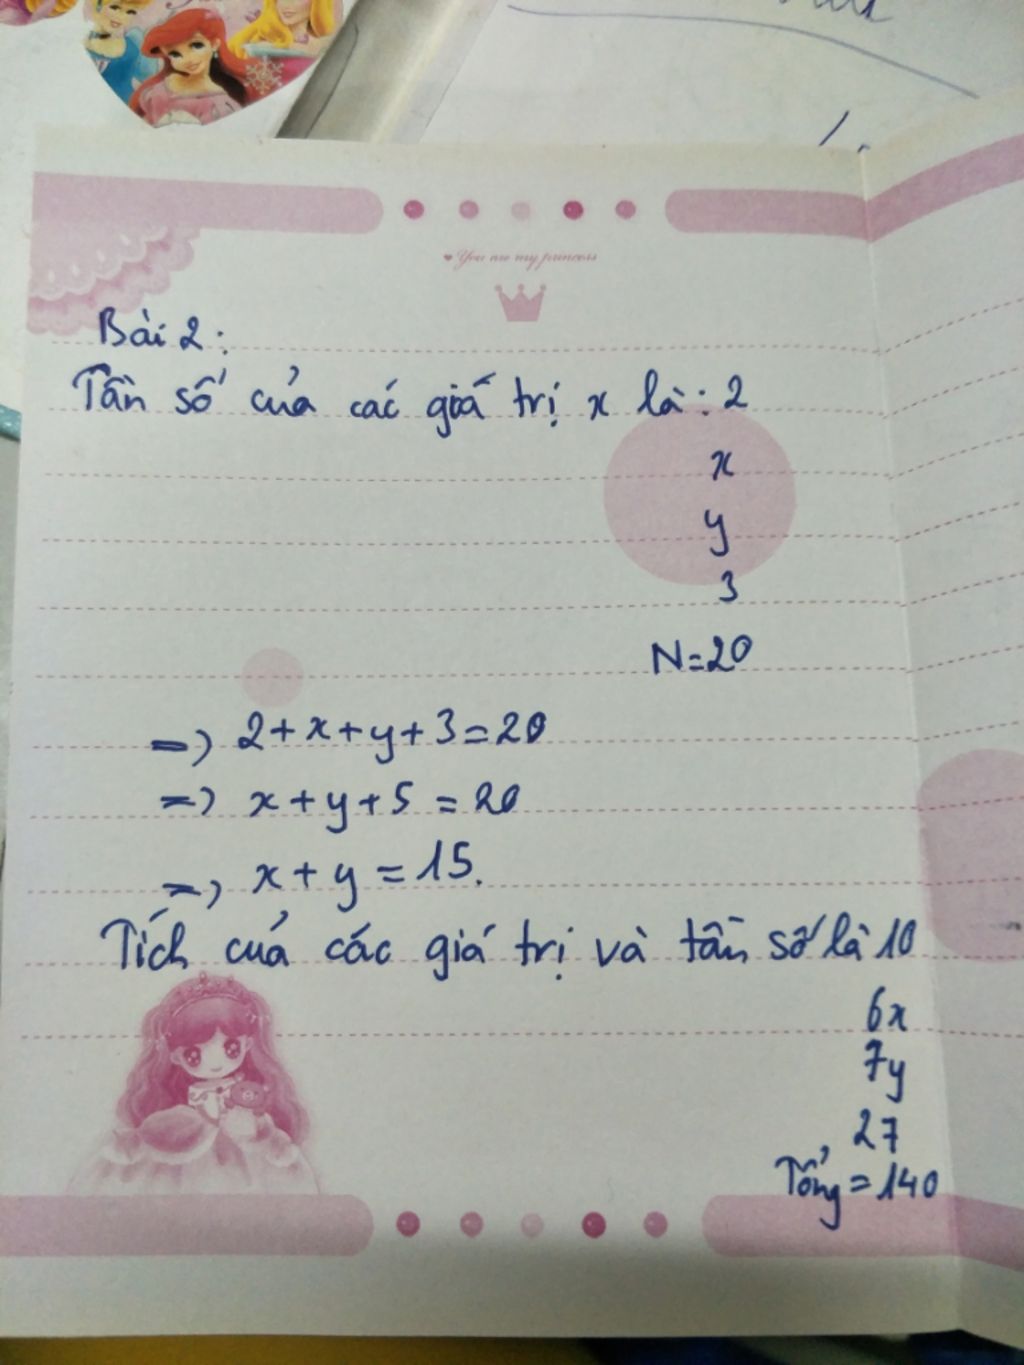 You are my princess
Bài 2:
Tần số của các giá trị x là: 2
x
y
3
N=20
=> 2+x+y+3=20
=> x+y+5=20
=> x+y=15.
Tích của các giá trị và tần số là 10
6x
7y
27
Tổng=140